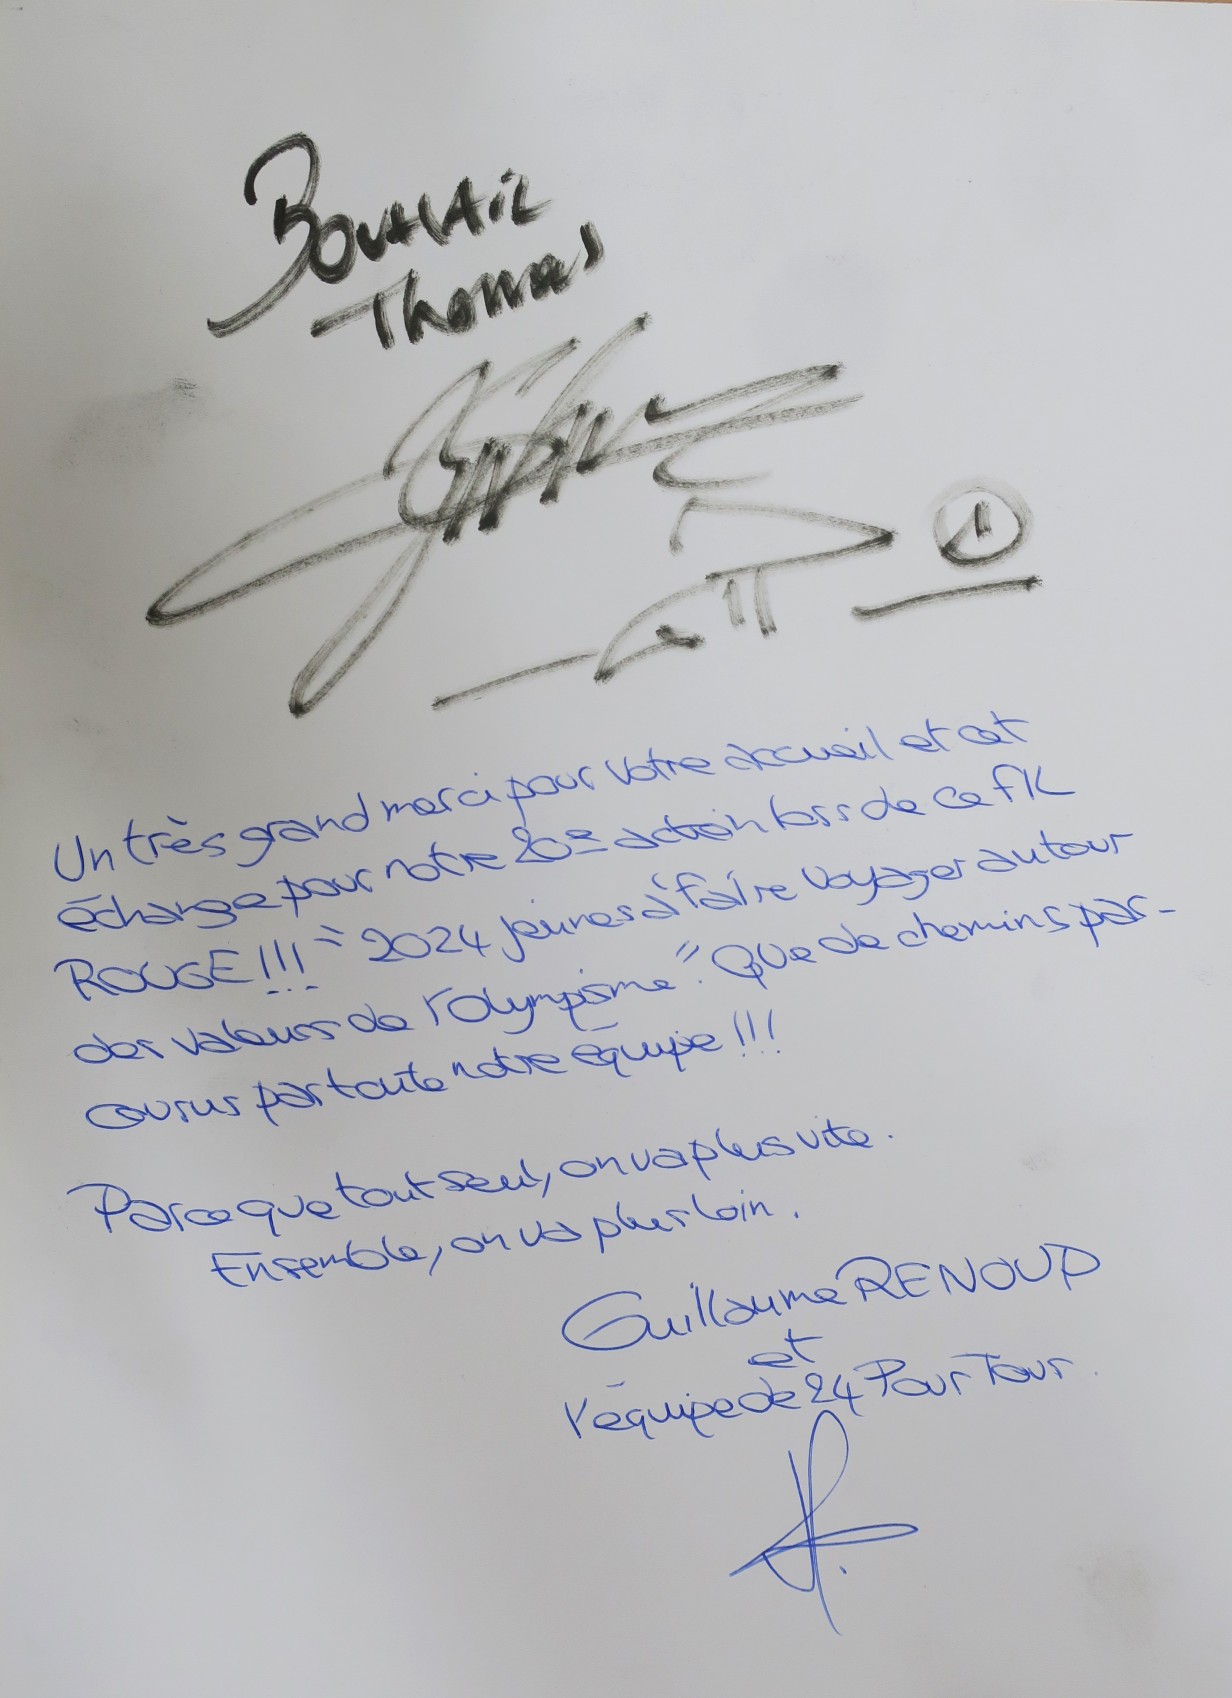 BOUHAIL
Thomas
1
Un très grand merci pour votre accueil et cet
échange pour notre 20e action lors de ce fil
ROUGE !!! "2024 jeunes à faire voyager autour
des valeurs de l'olympisme". Que de chemins par-
courus par toute notre équipe !!!
Parce que tout seul, on va plus vite.
Ensemble, on va plus loin.
Guillaume RENOUD
et
l'équipe de 24 Pour Tour.